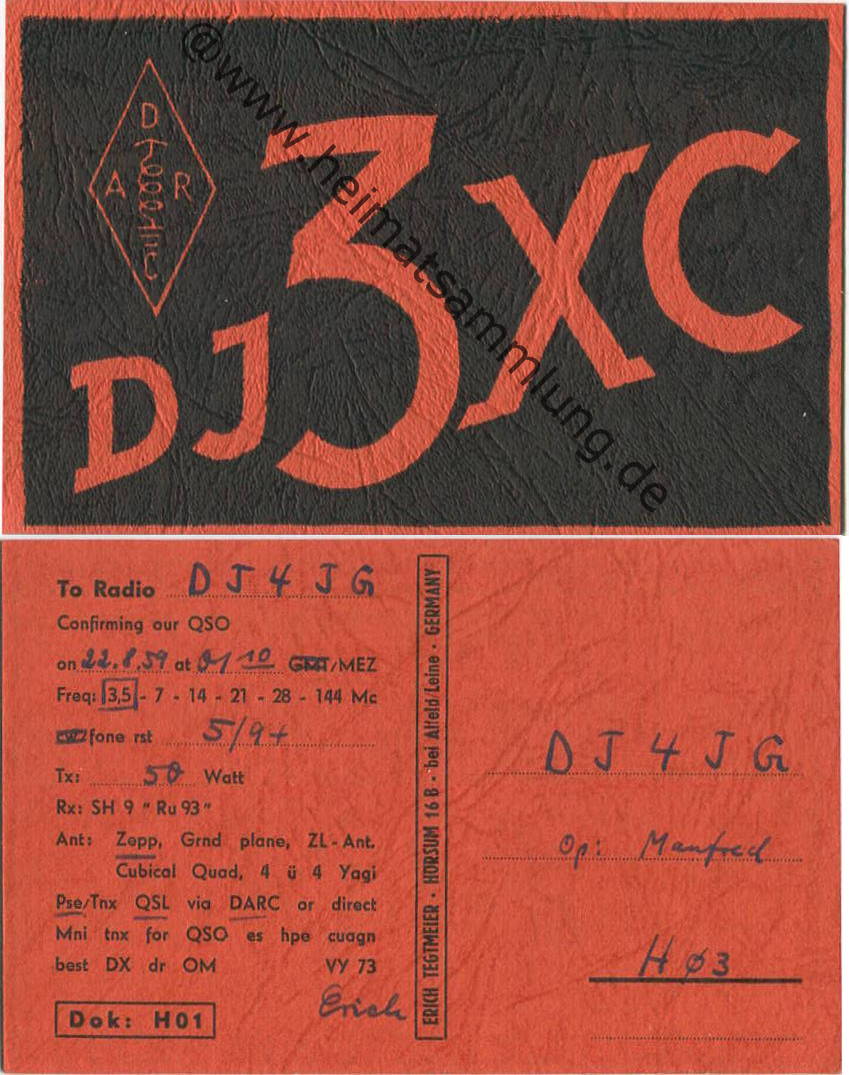 @www.heimatsammlung.de
D
A R
C
DJ3XC
To Radio DJ4JG
Confirming our QSO
on 22.8.59 at 01 10 GMT/MEZ
Freq: 3,5 - 7 - 14 - 21 - 28 - 144 Mc
cw/fone rst 5/9+
Tx: 50 Watt
Rx: SH 9 " Ru 93"
Ant: Zepp, Grnd plane, ZL-Ant.
Cubical Quad, 4 ü 4 Yagi
Pse/Tnx QSL via DARC or direct
Mni tnx for QSO es hpe cuagn
best DX dr OM VY 73
Erich
Dok: H01
ERICH TEGTMEIER · HÖRSUM 16 B · bei Alfeld/Leine · GERMANY
DJ4JG
Op: Manfred
HØ3